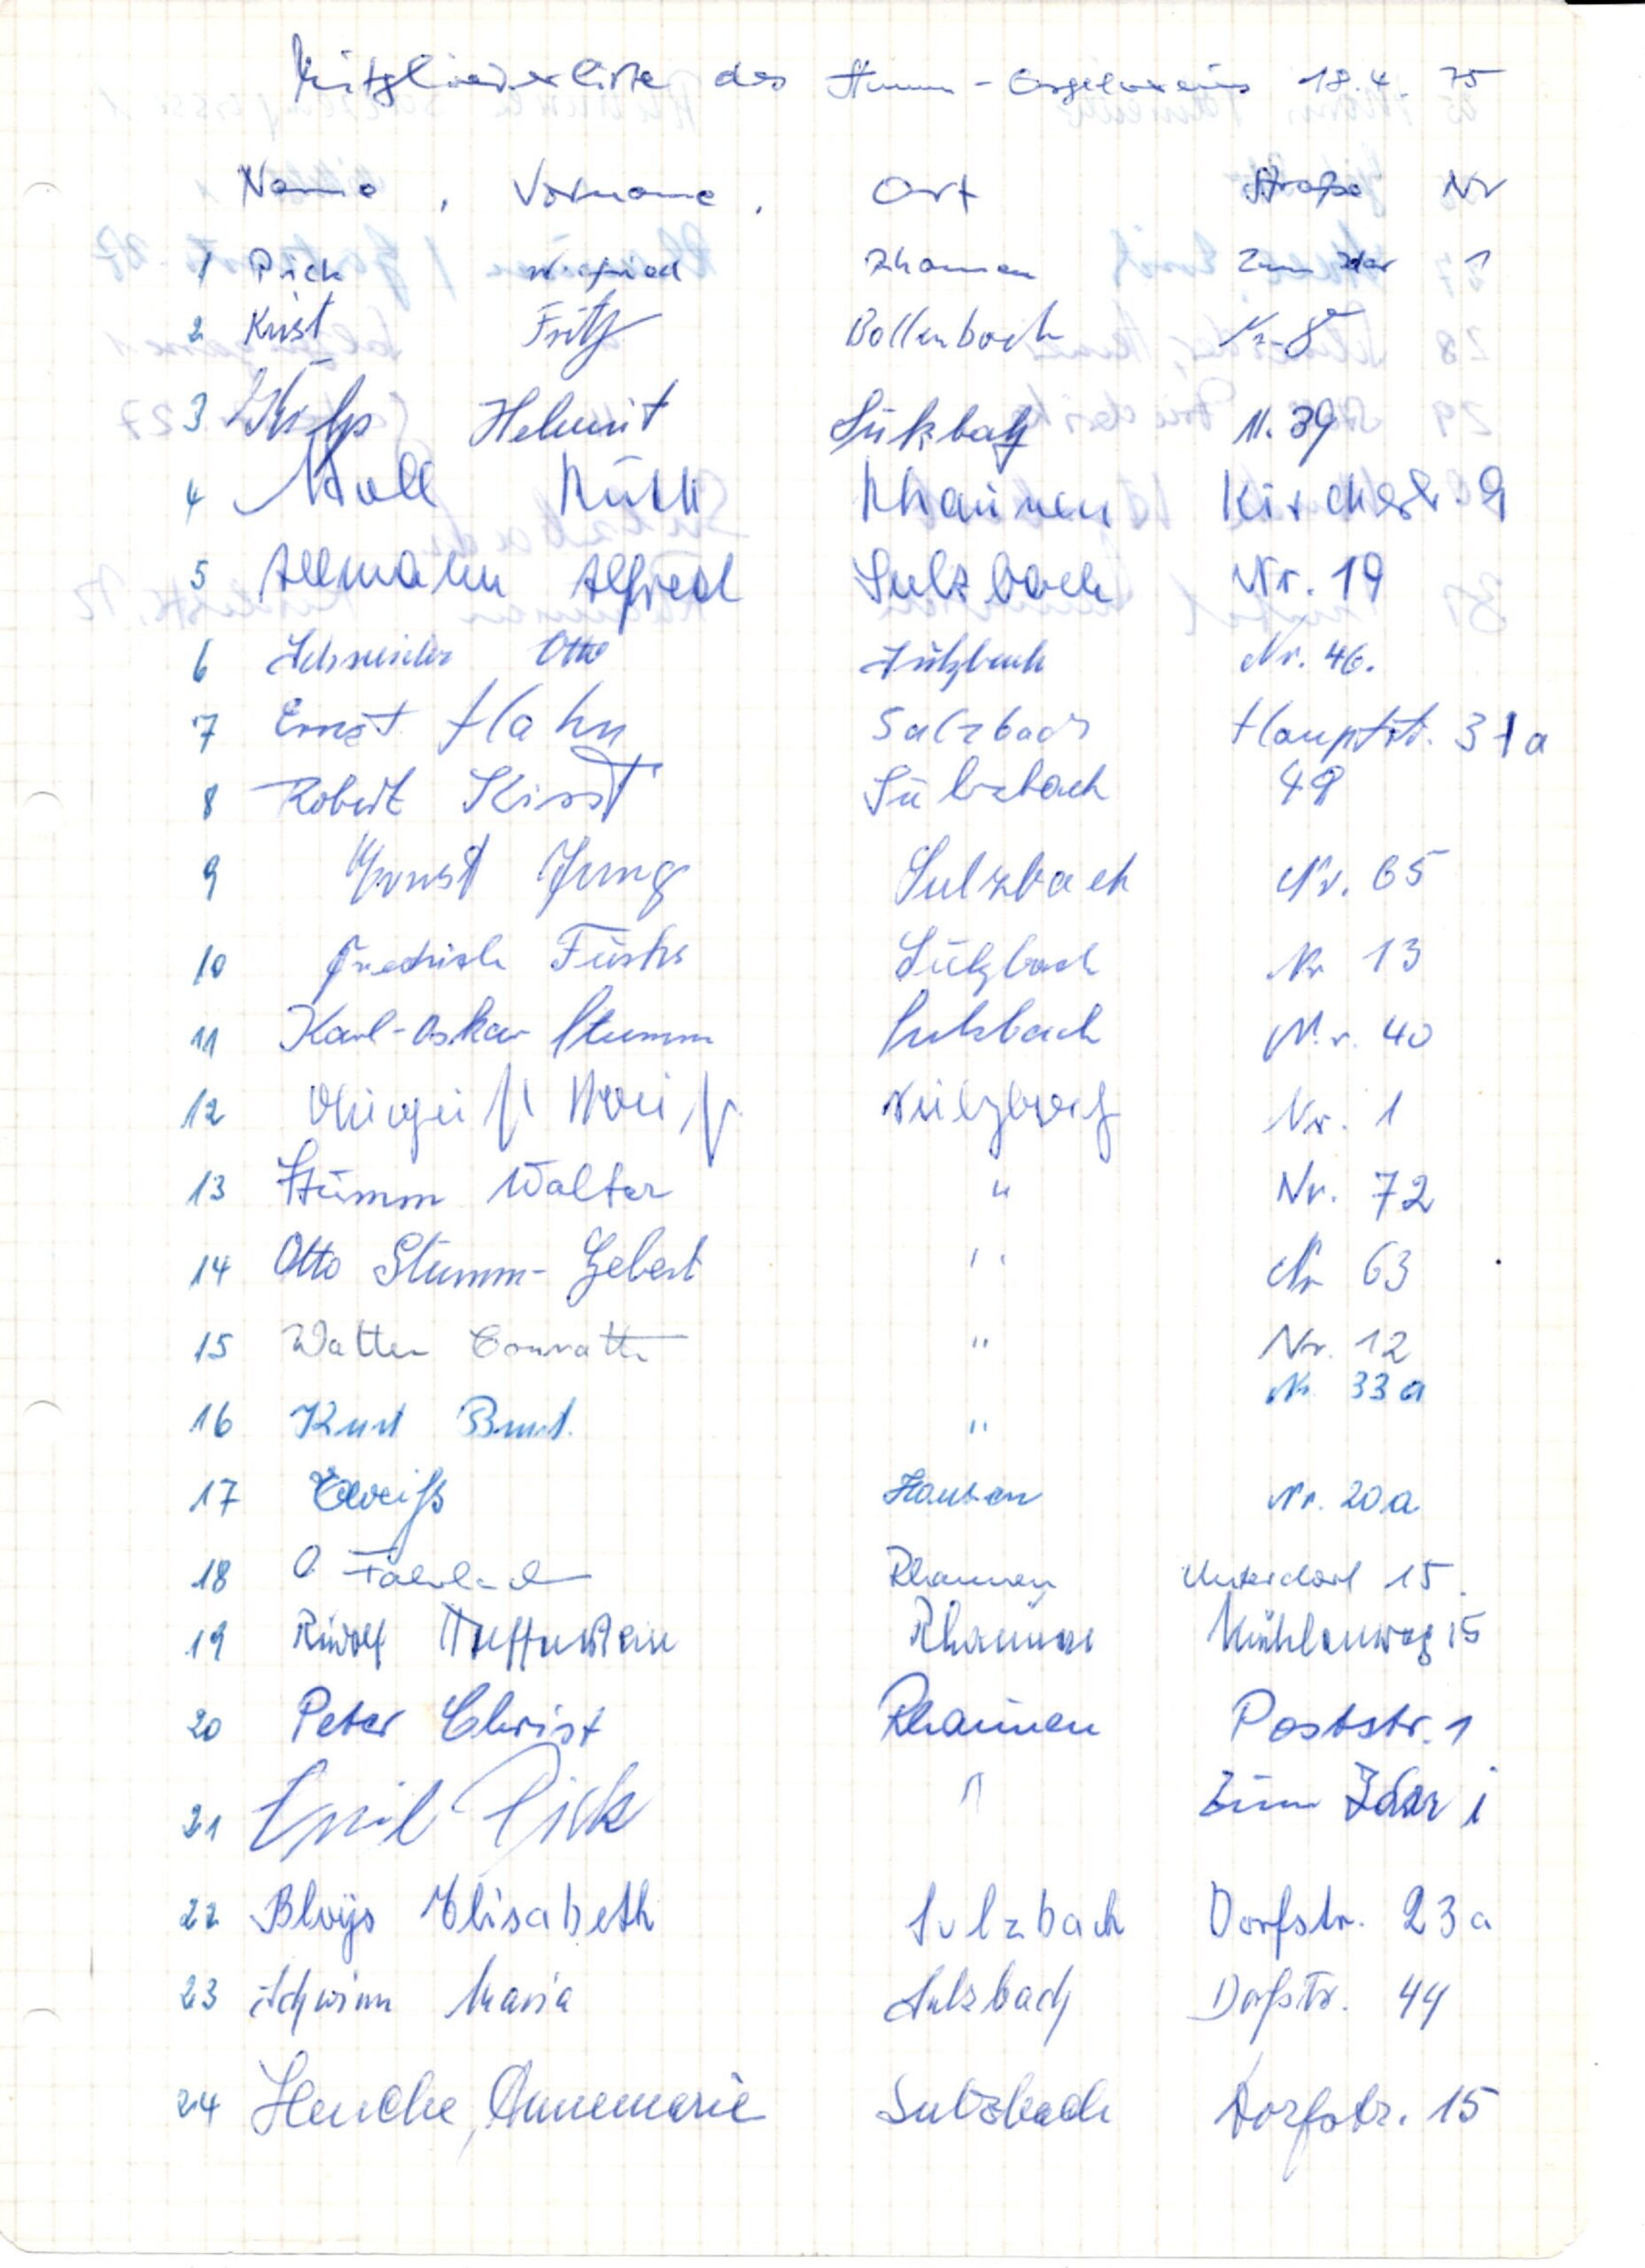 Mitgliederliste des Stumm-Orgelvereins 18.4.75
Name, Vorname, Ort Straße Nr
1 Pick Winfried Rhaunen Zum Idar 1
2 Krist Fritz Bollenbach Nr. 8
3 Helmut Sulzbach N. 39
4 Moll Ruth Rhaunen Kirchstr. 9
5 Allmann Alfred Sulzbach Nr. 19
6 Schneider Otto Sulzbach Nr. 46.
7 Ernst Hahn Sulzbach Hauptst. 31a
8 Robert Sulzbach 48
9 Ernst Jung Sulzbach Nr. 65
10 Friedrich Fuchs Sulzbach Nr 13
11 Karl-Oskar Stumm Sulzbach Nr. 40
12 Sulzbach Nr. 1
13 Stumm Walter " Nr. 72
14 Otto Stumm-Gebert " Nr 63
15 Walter Conrath " Nr. 12
16 Kurt " Nr. 33a
17 Hausen Nr. 20a
18 O Rhaunen Unterdorf 15.
19 Rudolf Rhaunen Mühlenweg 15
20 Peter Christ Rhaunen Poststr. 1
21 Emil Pick " Zum Idar 1
22 Bloys Elisabeth Sulzbach Dorfstr. 23a
23 Schwinn Maria Sulzbach Dorfstr. 44
24 Annemarie Sulzbach Dorfstr. 15